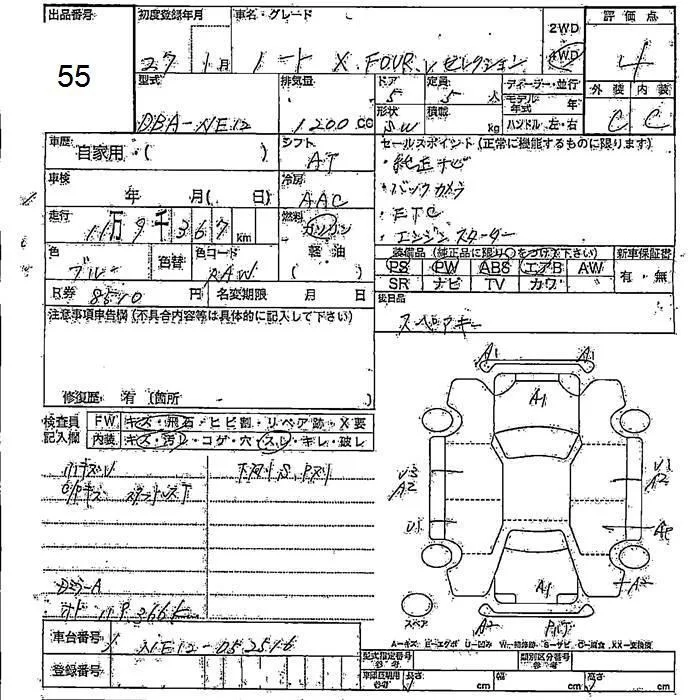 出品番号 初度登録年月 車名・グレード 評価点
55 27年1月 ノート X FOUR Vセレクション 2WD 4WD 4
型式 排気量 ドア 定員 ディーラー・並行 外装 内装
DBA-NE12 1200cc 5 5人 モデル年式 年 C C
形状 積載
SW kg ハンドル 左・右
車歴 自家用 ( ) シフト AT
セールスポイント (正常に機能するものに限ります)
・純正ナビ
・バックカメラ
・ETC
・エンジンスターター
車検 年 月( 日) 冷房 AAC
走行 11万9千367km 燃料 ガソリン
軽油
( )
色 ブルー 色替 色コード RAW
装備品 (純正品に限り○をつけて下さい) 新車保証書
PS PW ABS エアB AW 有・無
SR ナビ TV カワ
R券 8540円 名変期限 月 日
後日品
スペアキー
注意事項申告欄 (不具合内容等は具体的に記入して下さい)
修復歴 有 (箇所 )
検査員記入欄 FW キズ・飛石・ヒビ割・リペア跡・X要
内装 キズ・汚レ・コゲ・穴・スレ・キレ・破レ
A1 A1
A1
A2
A2
A1
A2
スペア
車台番号 NE12-052516
登録番号
A-キズ E-エクボ U-凹ミ W-補修跡 S-サビ C-腐食 XX-交換済
型式指定番号 参考 類別区分番号 参考
車検証期間 参考 長さ cm 幅 cm 高さ cm